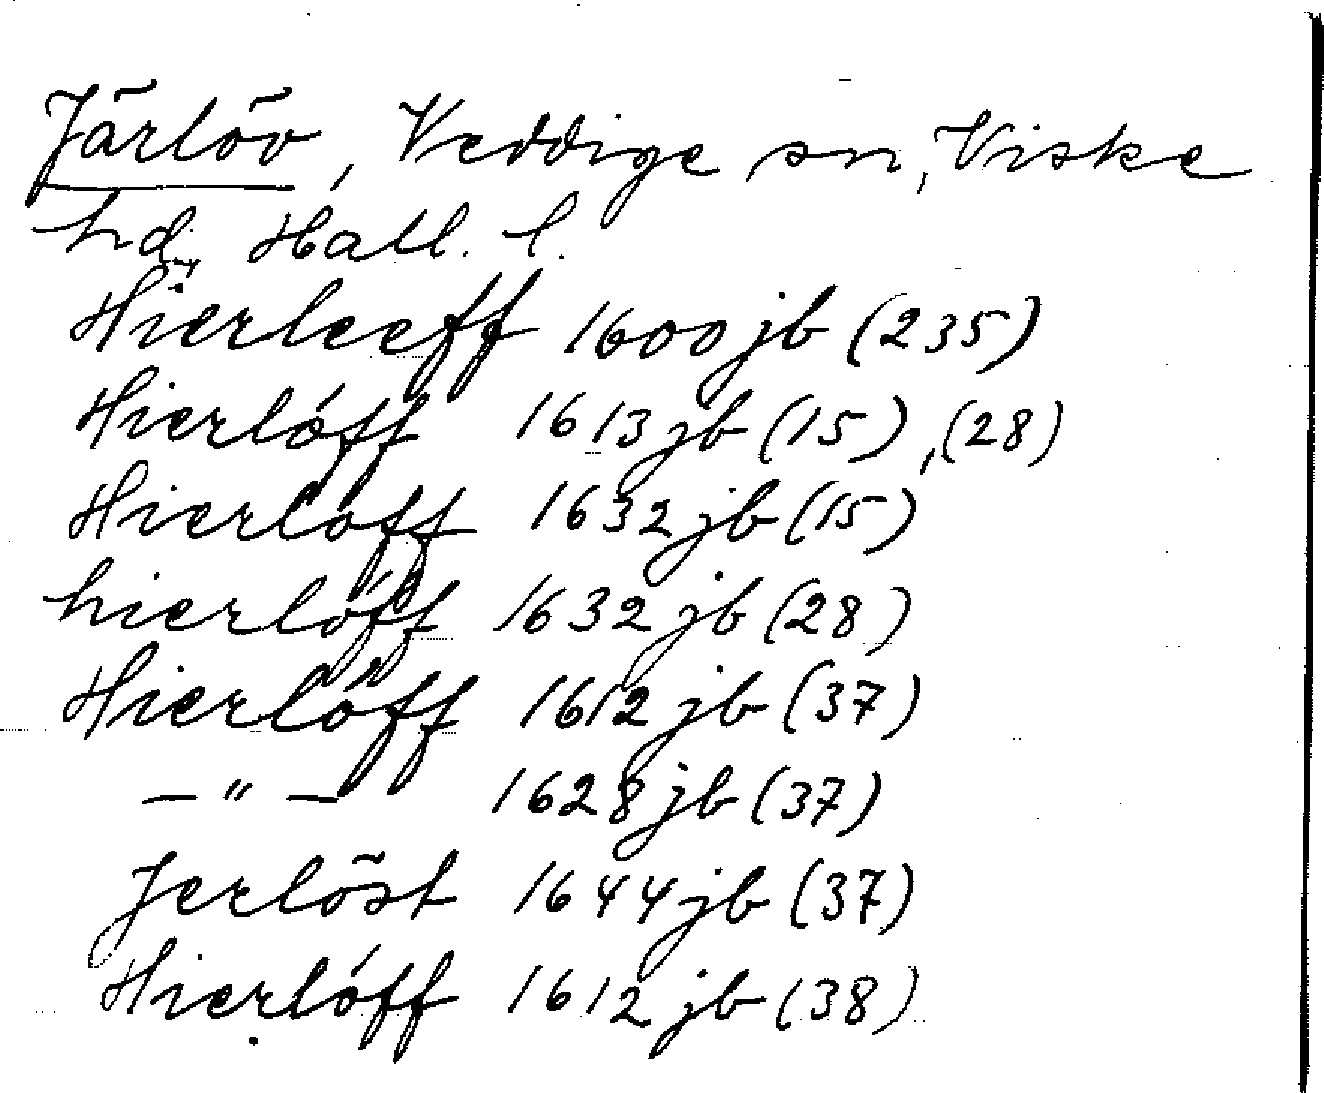 Järlöv, Veddige sn, Viske
hd, Hall. l.
Hierleeff 1600 jb (235)
Hierlóff 1613 jb (15), (28)
Hierlóff 1632 jb (15)
hierlóff 1632 jb (28)
Hierlőff 1612 jb (37)
— " — 1628 jb (37)
Jerlöst 1644 jb (37)
Hierlóff 1612 jb (38)